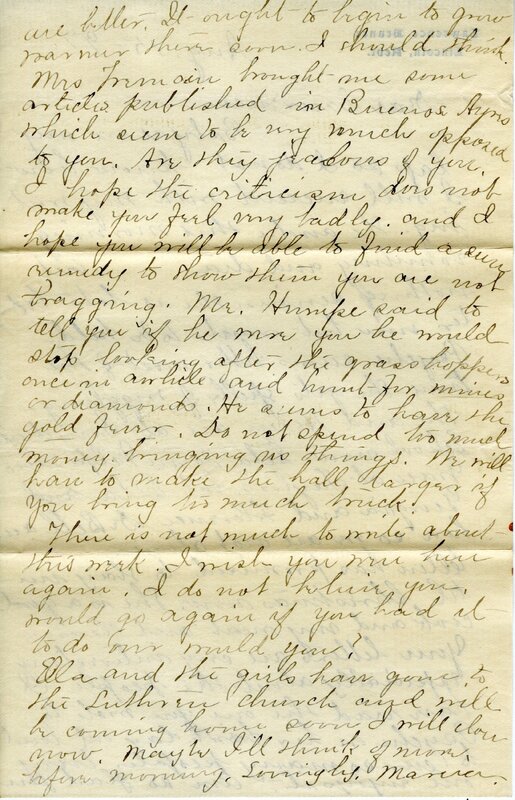 are better. It ought to begin to grow
warmer there soon I should think.
Mrs Tremain brought me some
articles published in Buenos Ayres
which seem to be very much opposed
to you. Are they jealous of you.
I hope the criticism does not
make you feel very badly. and I
hope you will be able to find a sure
remedy to show them you are not
bragging. Mr. Humpe said to
tell you if he were you he would
stop looking after the grasshoppers
once in awhile and hunt for mines
or diamonds. He seems to have the
gold fever. Do not spend too much
money bringing us things. We will
have to make the hall larger if
you bring too much truck.
There is not much to write about
this week. I wish you were here
again. I do not believe you
would go again if you had it
to do over would you?
Ella and the girls have gone to
the Luthren church and will
be coming home soon I will close
now. Maybe I'll think of more
before morning. Lovingly. Marcia.